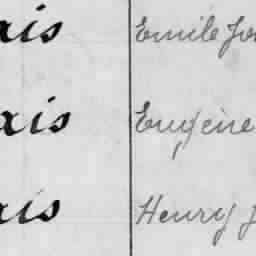 xis Emile Jos
xis Eugène
xis Henry J